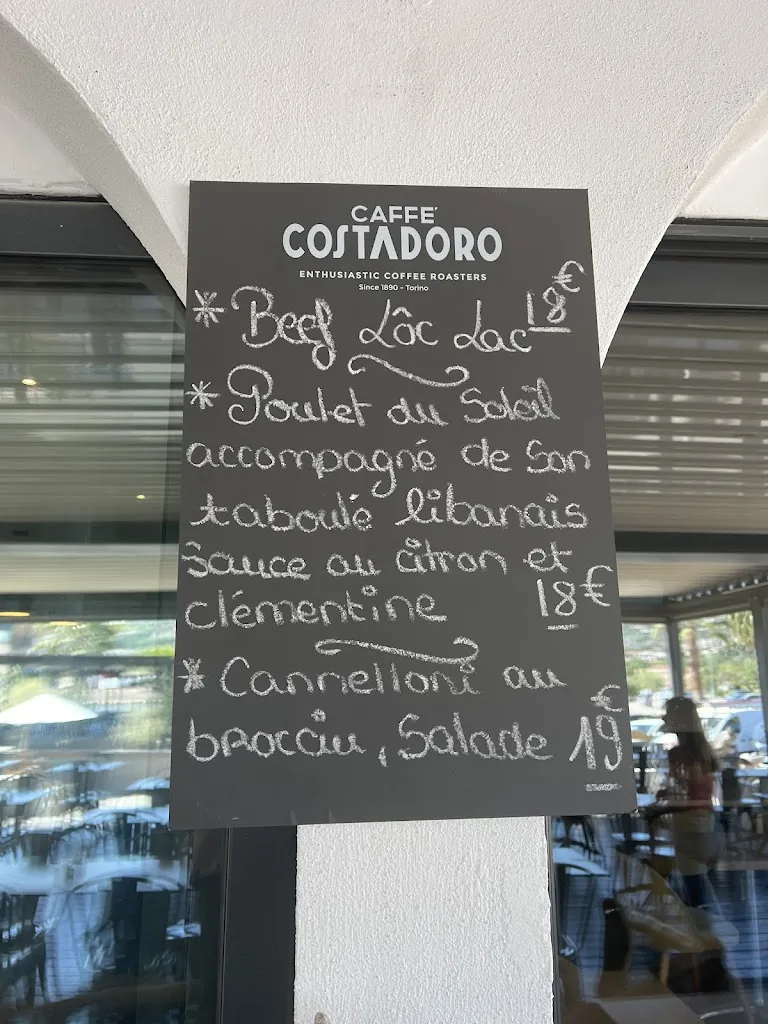 CAFFE'
COSTADORO
ENTHUSIASTIC COFFEE ROASTERS
Since 1890 - Torino
* Beef Lôc Lac 18€
* Poulet du Soleil
accompagné de son
taboulé libanais
sauce au citron et
clémentine 18€
* Cannelloni au
brocciu, Salade 19€